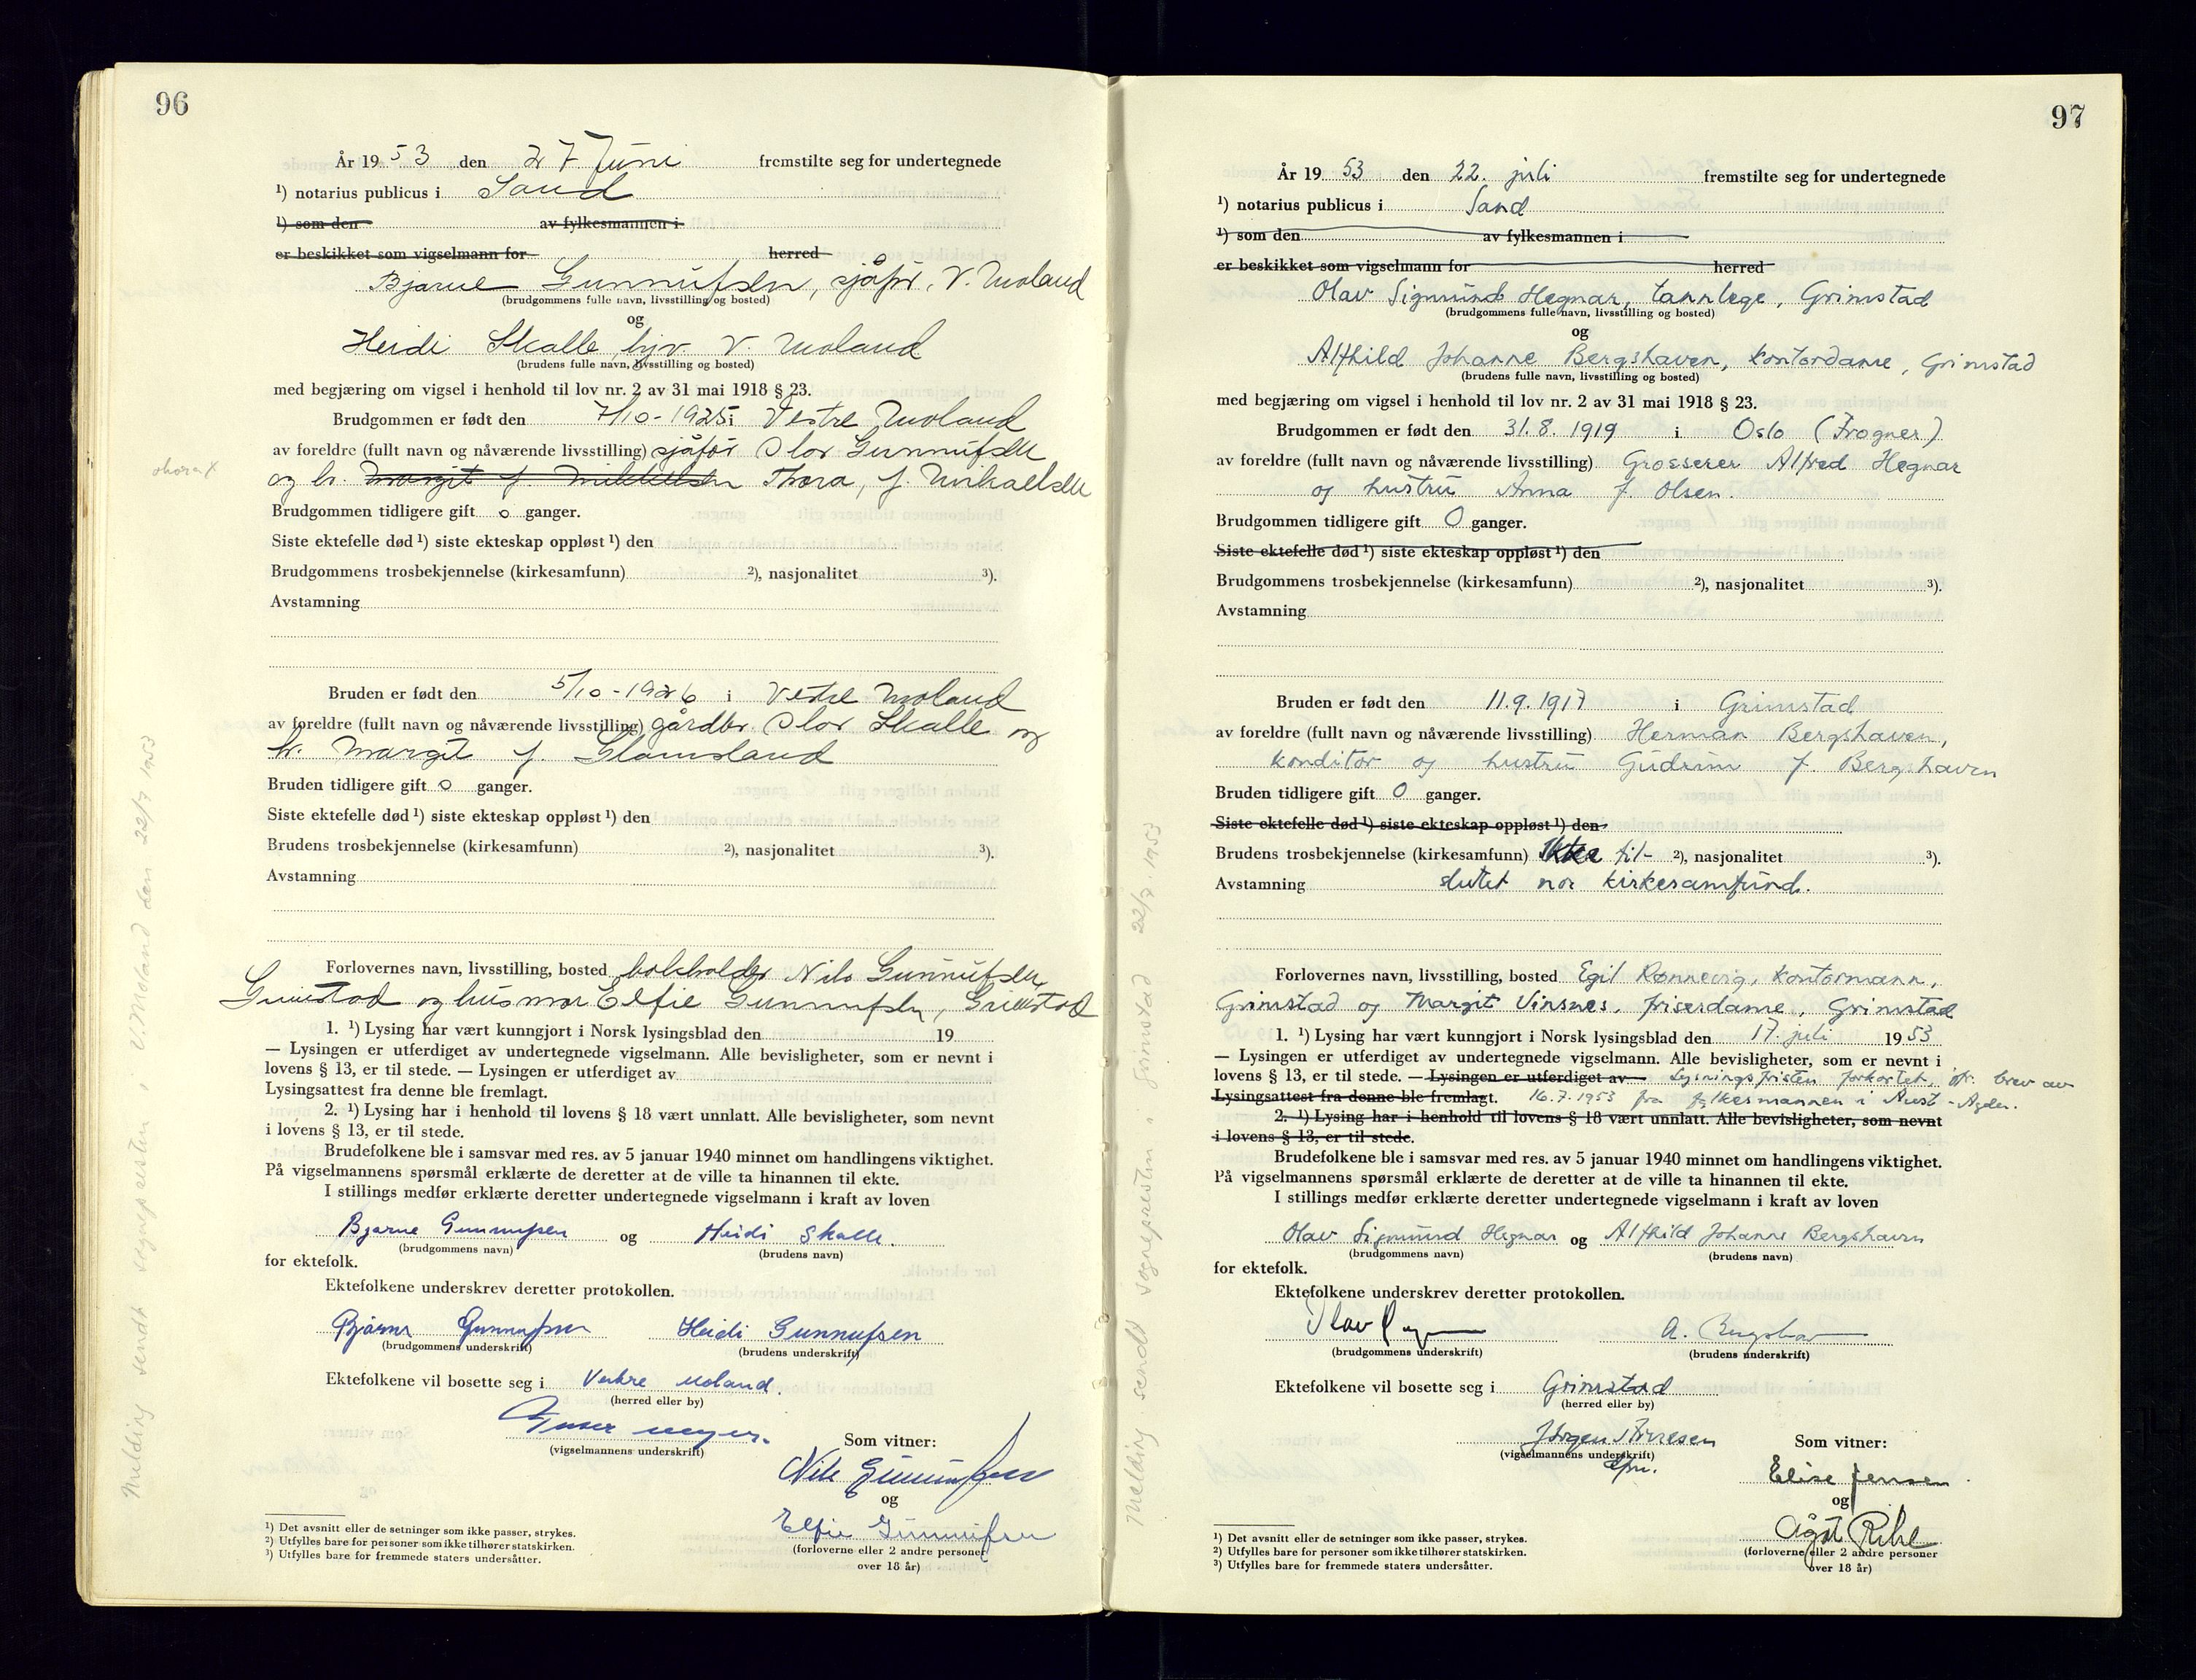 96
År 1953 den 27 Juni fremstilte seg for undertegnede
¹) notarius publicus i Sand
¹) som den av fylkesmannen i
er beskikket som vigselmann for herred
Bjarne Gunnufsen, sjåfør, V. Moland
(brudgommens fulle navn, livsstilling og bosted)
og
Heidi Skalle, hjv V. Moland
(brudens fulle navn, livsstilling og bosted)
med begjæring om vigsel i henhold til lov nr. 2 av 31 mai 1918 § 23.
Brudgommen er født den 7/10-1925 i Vestre Moland
av foreldre (fullt navn og nåværende livsstilling) sjåfør Olav Gunnufsen
og h. Margit f. Mikkelsen Thora, f. Mikaelsen
Brudgommen tidligere gift 0 ganger.
Siste ektefelle død ¹) siste ekteskap oppløst ¹) den
Brudgommens trosbekjennelse (kirkesamfunn) ²), nasjonalitet ³).
Avstamning
Bruden er født den 5/10-1926 i Vestre Moland
av foreldre (fullt navn og nåværende livsstilling) gårdbr. Olav Skalle og
h. Margit f. Glamsland
Bruden tidligere gift 0 ganger.
Siste ektefelle død ¹) siste ekteskap oppløst ¹) den
Brudens trosbekjennelse (kirkesamfunn) ²), nasjonalitet ³).
Avstamning
Forlovernes navn, livsstilling, bosted bokholder Nils Gunnufsen,
Grimstad og husmor Elfie Gunnufsen, Grimstad
1. ¹) Lysing har vært kunngjort i Norsk lysingsblad den 19
— Lysingen er utferdiget av undertegnede vigselmann. Alle bevisligheter, som er nevnt i
lovens § 13, er til stede. — Lysingen er utferdiget av
Lysingsattest fra denne ble fremlagt.
2. ¹) Lysing har i henhold til lovens § 18 vært unnlatt. Alle bevisligheter, som nevnt
i lovens § 13, er til stede.
Brudefolkene ble i samsvar med res. av 5 januar 1940 minnet om handlingens viktighet.
På vigselmannens spørsmål erklærte de deretter at de ville ta hinannen til ekte.
I stillings medfør erklærte deretter undertegnede vigselmann i kraft av loven
Bjarne Gunnufsen og Heidi Skalle.
(brudgommens navn) (brudens navn)
for ektefolk.
Ektefolkene underskrev deretter protokollen.
Bjarne Gunnufsen Heidi Gunnufsen
(brudgommens underskrift) (brudens underskrift)
Ektefolkene vil bosette seg i Vestre Moland.
(herred eller by)
(vigselmannens underskrift)
Som vitner:
Nils Gunnufsen
og
Elfie Gunnufsen
(forloverne eller 2 andre personer
over 18 år)
¹) Det avsnitt eller de setninger som ikke passer, strykes.
²) Utfylles bare for personer som ikke tilhører statskirken.
³) Utfylles bare for fremmede staters undersåtter.
Melding sendt sognepresten i V. Moland den 22/7 1953
97
År 1953 den 22. juli fremstilte seg for undertegnede
¹) notarius publicus i Sand
¹) som den av fylkesmannen i
er beskikket som vigselmann for herred
Olav Sigmund Hegnar, tannlege, Grimstad
(brudgommens fulle navn, livsstilling og bosted)
og
Alfhild Johanne Bergshaven, kontordame, Grimstad
(brudens fulle navn, livsstilling og bosted)
med begjæring om vigsel i henhold til lov nr. 2 av 31 mai 1918 § 23.
Brudgommen er født den 31.8.1919 i Oslo (Frogner)
av foreldre (fullt navn og nåværende livsstilling) Grosserer Alfred Hegnar
og hustru Anna f. Olsen.
Brudgommen tidligere gift 0 ganger.
Siste ektefelle død ¹) siste ekteskap oppløst ¹) den
Brudgommens trosbekjennelse (kirkesamfunn) ²), nasjonalitet ³).
Avstamning
Bruden er født den 11.9.1917 i Grimstad
av foreldre (fullt navn og nåværende livsstilling) Herman Bergshaven,
konditor og hustru Gudrun f. Bergshaven
Bruden tidligere gift 0 ganger.
Siste ektefelle død ¹) siste ekteskap oppløst ¹) den
Brudens trosbekjennelse (kirkesamfunn) Ikke til- ²), nasjonalitet ³).
Avstamning sluttet noe kirkesamfund.
Forlovernes navn, livsstilling, bosted Egil Rønnevig, kontormann,
Grimstad og Margit Vinsnes, friserdame, Grimstad
1. ¹) Lysing har vært kunngjort i Norsk lysingsblad den 17. juli 1953
— Lysingen er utferdiget av undertegnede vigselmann. Alle bevisligheter, som er nevnt i
lovens § 13, er til stede. — Lysingen er utferdiget av Lysningsfristen forkortet, jfr. brev av
Lysingsattest fra denne ble fremlagt. 16.7.1953 fra fylkesmannen i Aust-Agder.
2. ¹) Lysing har i henhold til lovens § 18 vært unnlatt. Alle bevisligheter, som nevnt
i lovens § 13, er til stede.
Brudefolkene ble i samsvar med res. av 5 januar 1940 minnet om handlingens viktighet.
På vigselmannens spørsmål erklærte de deretter at de ville ta hinannen til ekte.
I stillings medfør erklærte deretter undertegnede vigselmann i kraft av loven
Olav Sigmund Hegnar og Alfhild Johanne Bergshaven
(brudgommens navn) (brudens navn)
for ektefolk.
Ektefolkene underskrev deretter protokollen.
Olav A. Bergshav
(brudgommens underskrift) (brudens underskrift)
Ektefolkene vil bosette seg i Grimstad
(herred eller by)
Jørgen
(vigselmannens underskrift)
Som vitner:
Elise Jensen
og
Ågot
(forloverne eller 2 andre personer
over 18 år)
¹) Det avsnitt eller de setninger som ikke passer, strykes.
²) Utfylles bare for personer som ikke tilhører statskirken.
³) Utfylles bare for fremmede staters undersåtter.
Melding sendt sognepresten i Grimstad 22/7.1953